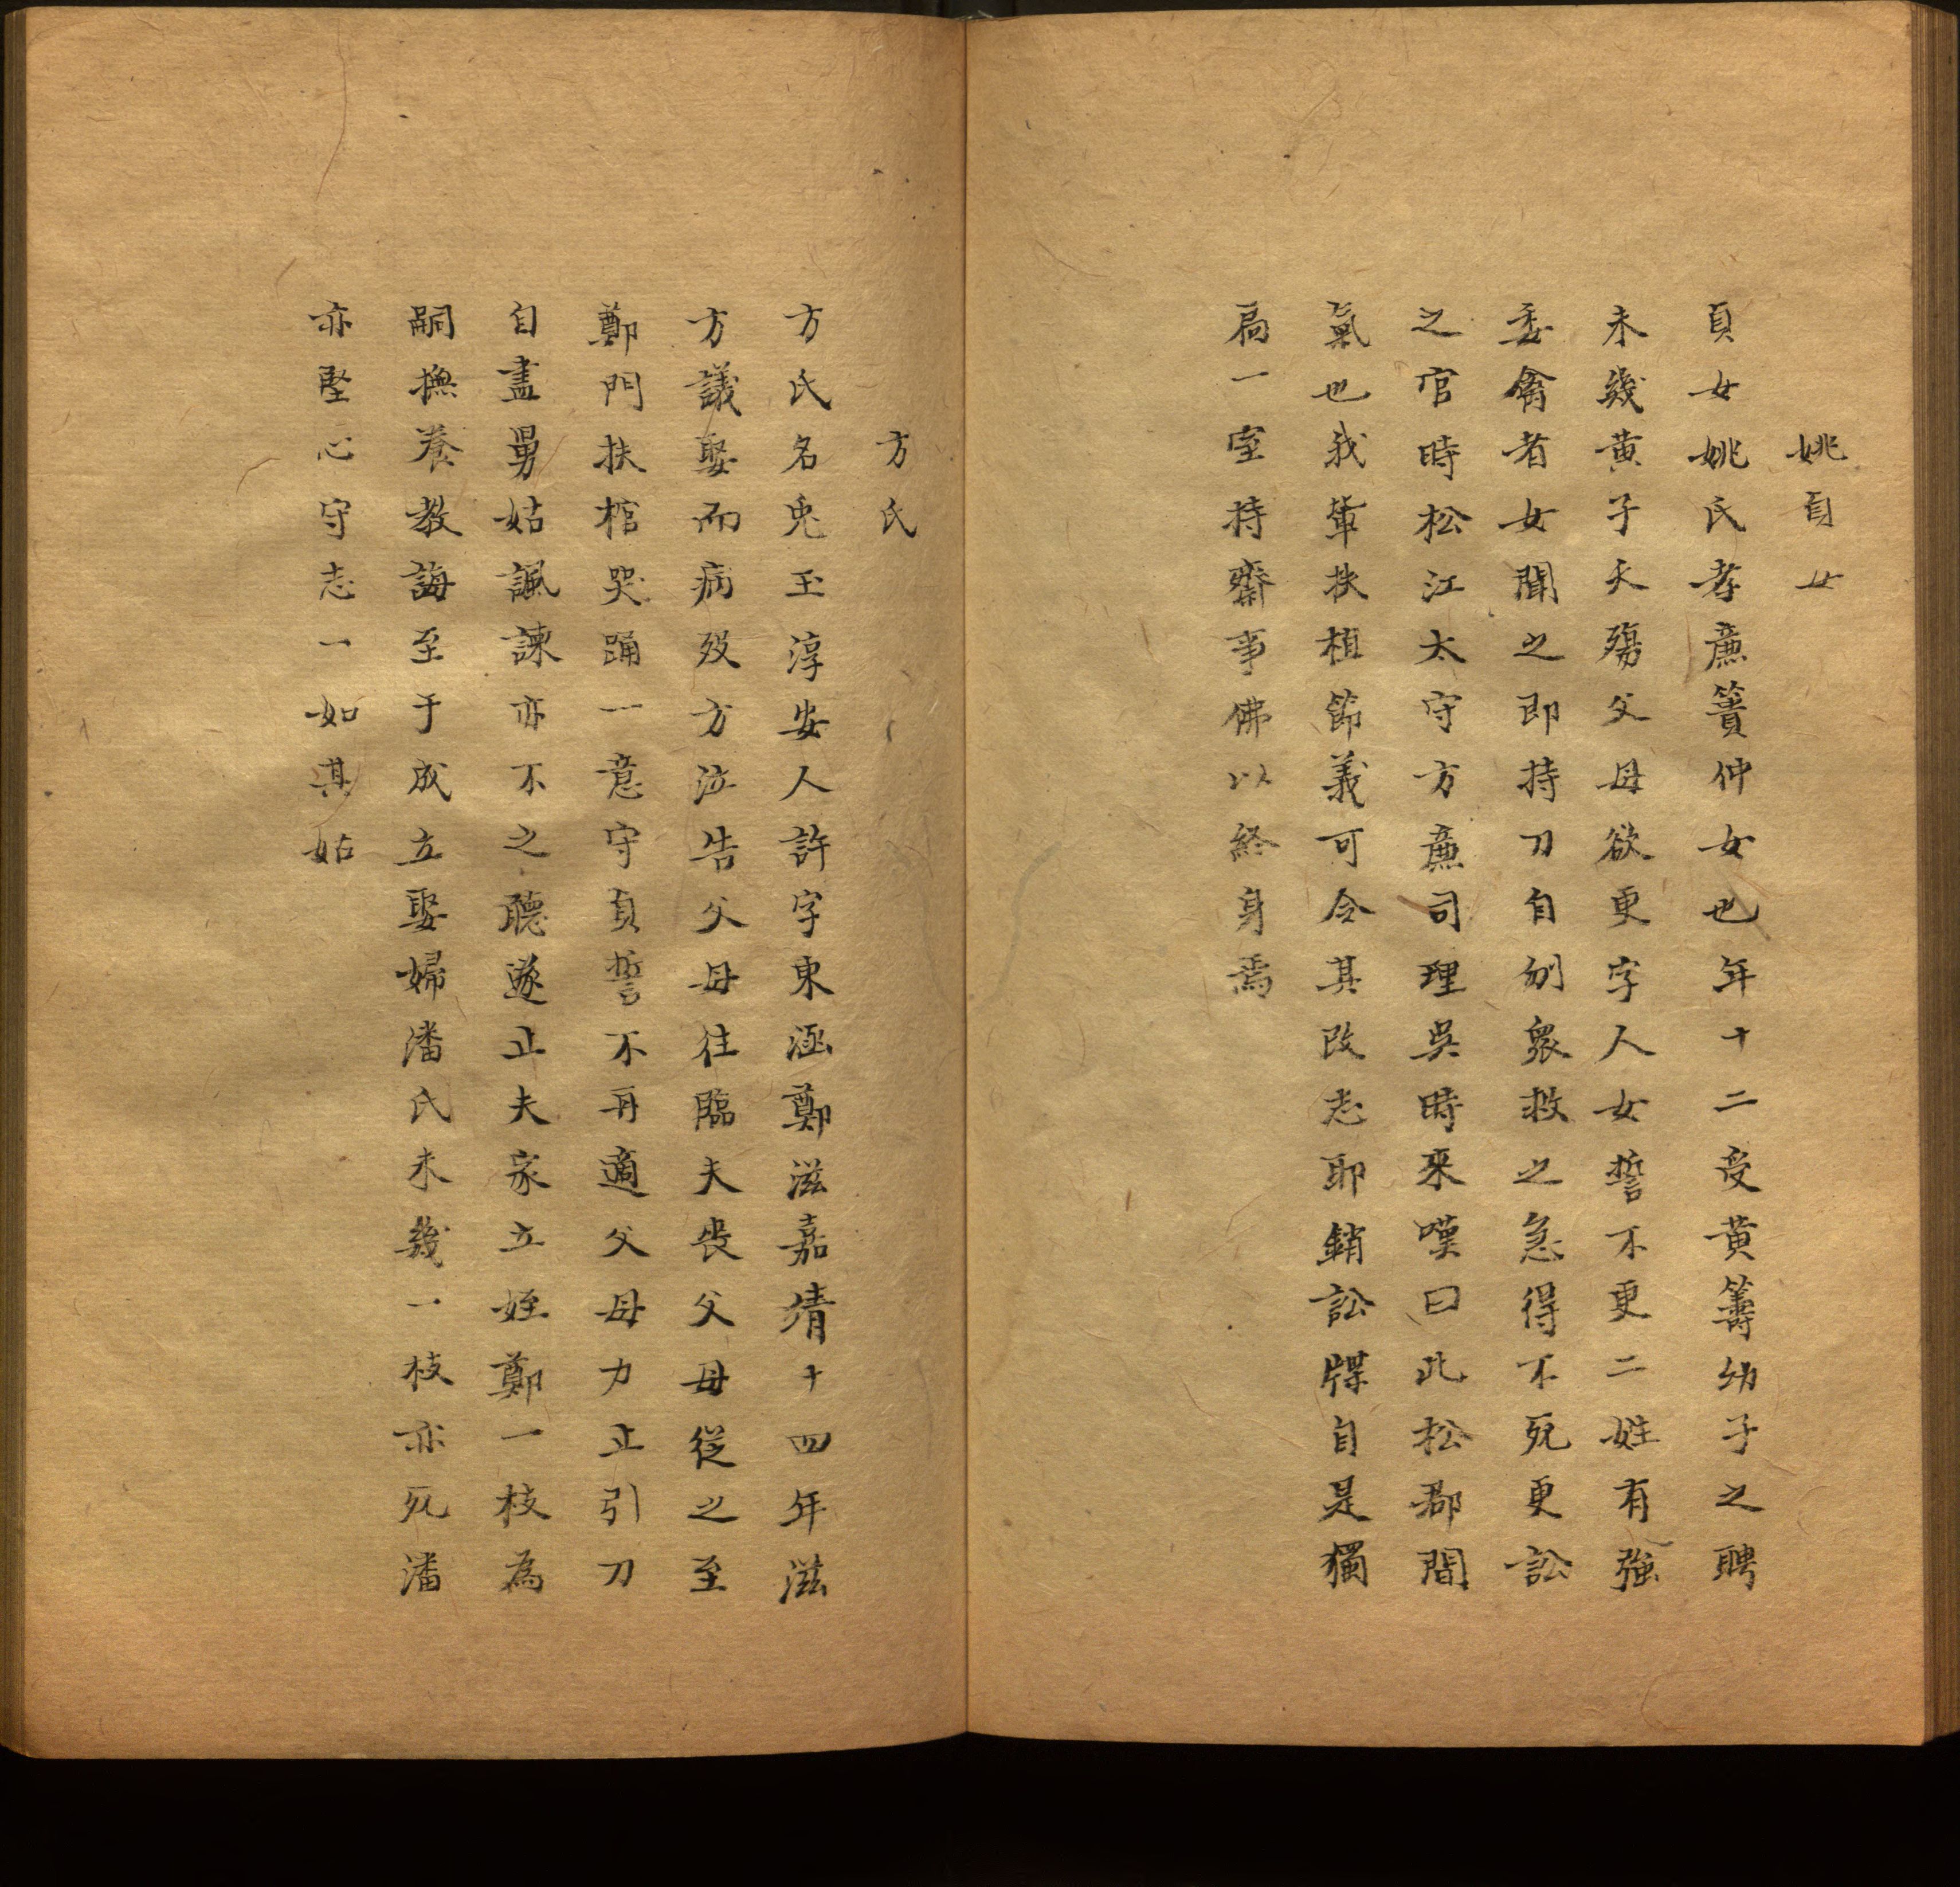 姚貞女
貞女姚氏孝廉簣仲女也年十二受黄籌幼子之聘
未幾黄子夭殤父母欲更字人女誓不更二姓有強
委禽者女聞之即持刀自刎衆救之急得不死更訟
之官時松江太守方廉司理吳時來嘆曰此松郡間
氣也我輩扶植節義可令其改志耶銷訟牒自是獨
扃一室持齋事佛以終身焉
方氏
方氏名兎玉淳安人許字東涵鄭滋嘉靖十四年滋
方議娶而病殁方泣告父母往臨夫喪父母從之至
鄭門扶棺哭踊一意守貞誓不再適父母力止引刀
自盡舅姑諷諫亦不之聽遂止夫家立姪鄭一枝為
嗣撫養教誨至于成立娶婦潘氏未幾一枝亦死潘
亦堅心守志一如其姑